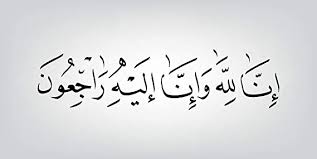 إِنَّا لِلَّٰهِ وَإِنَّا إِلَيْهِ رَاجِعُونَ